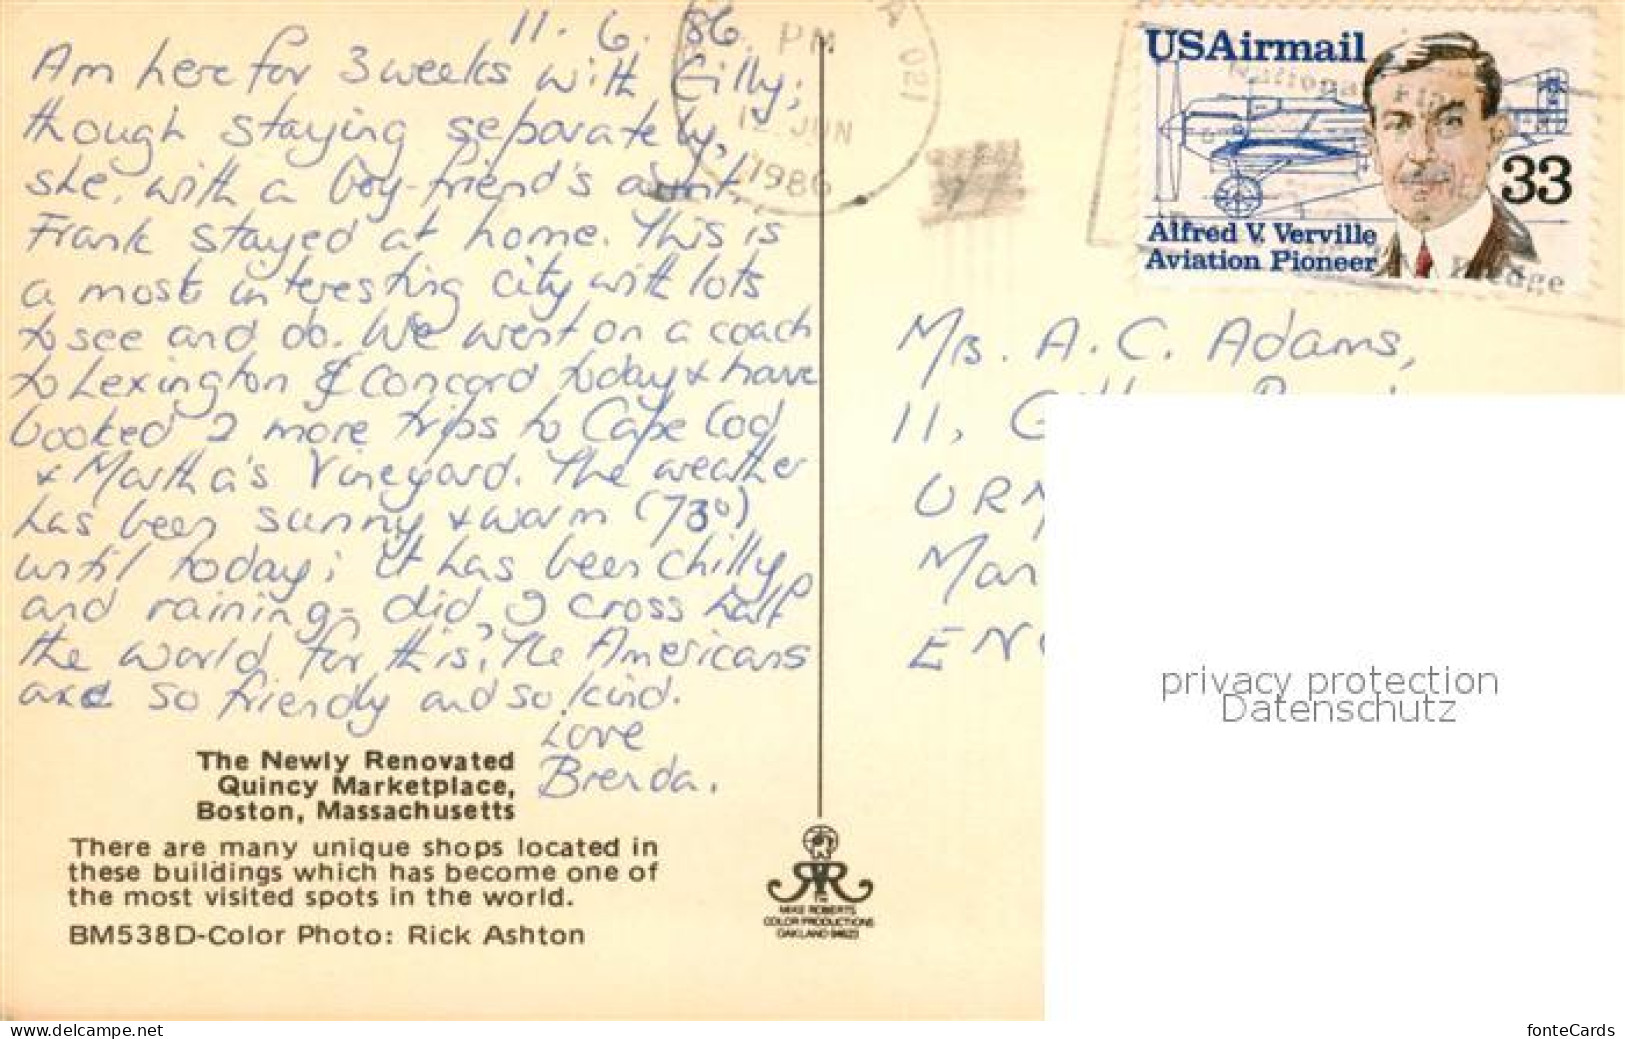 11. 6. 86.
Am here for 3 weeks with Gilly;
though staying separately,
she, with a boy-friend's aunt.
Frank stayed at home. This is
a most interesting city with lots
to see and do. We went on a coach
to Lexington & Concord today & have
booked 2 more trips to Cape Cod
& Martha's Vineyard. The weather
has been sunny & warm (73°)
until today; it has been chilly
and raining - did I cross half
the world for this. The Americans
are so friendly and so kind.
Love
Brenda.
The Newly Renovated
Quincy Marketplace,
Boston, Massachusetts
There are many unique shops located in
these buildings which has become one of
the most visited spots in the world.
BM538D-Color Photo: Rick Ashton
MIKE ROBERTS
COLOR PRODUCTIONS
OAKLAND 94623
PM
12 JUN
1986
021
USAirmail
33
Alfred V. Verville
Aviation Pioneer
Mrs. A. C. Adams,
11,
ENG
privacy protection
Datenschutz
www.delcampe.net
fonteCards